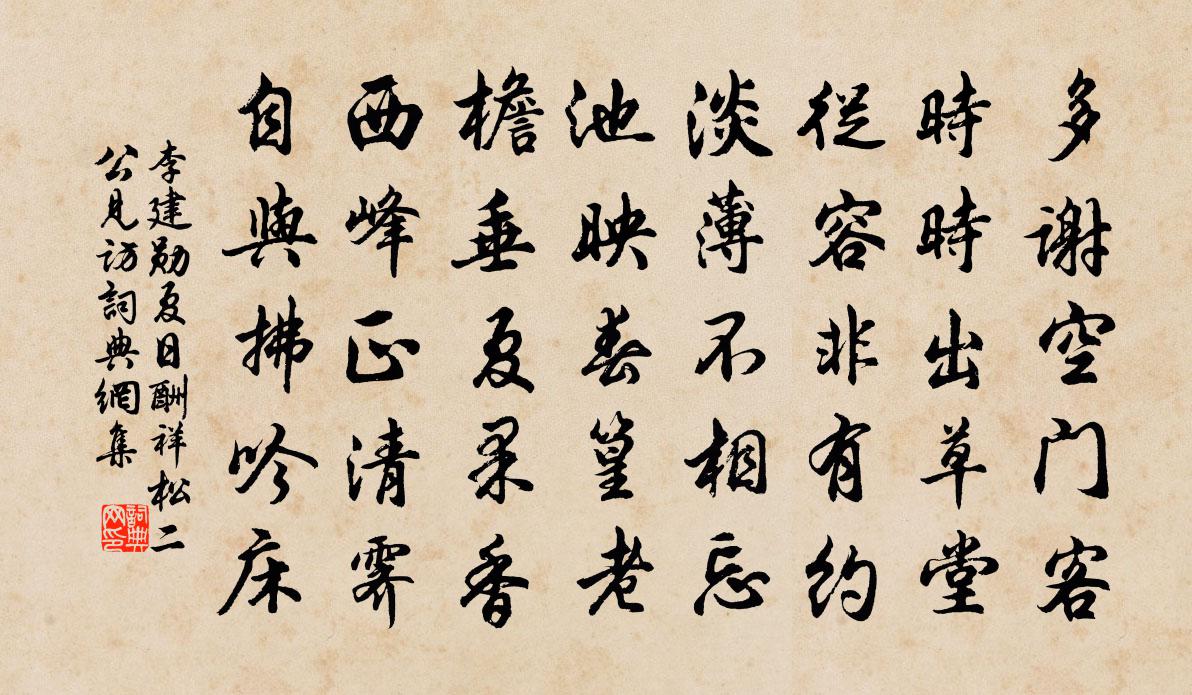 多謝空门客
時時出草堂
従容非有约
淡薄不相忘
池映春篁老
檐垂夏果香
西峰正清霽
自與拂吟床
李建勋夏日酬祥松二
公見访詞典網集
詞典网印